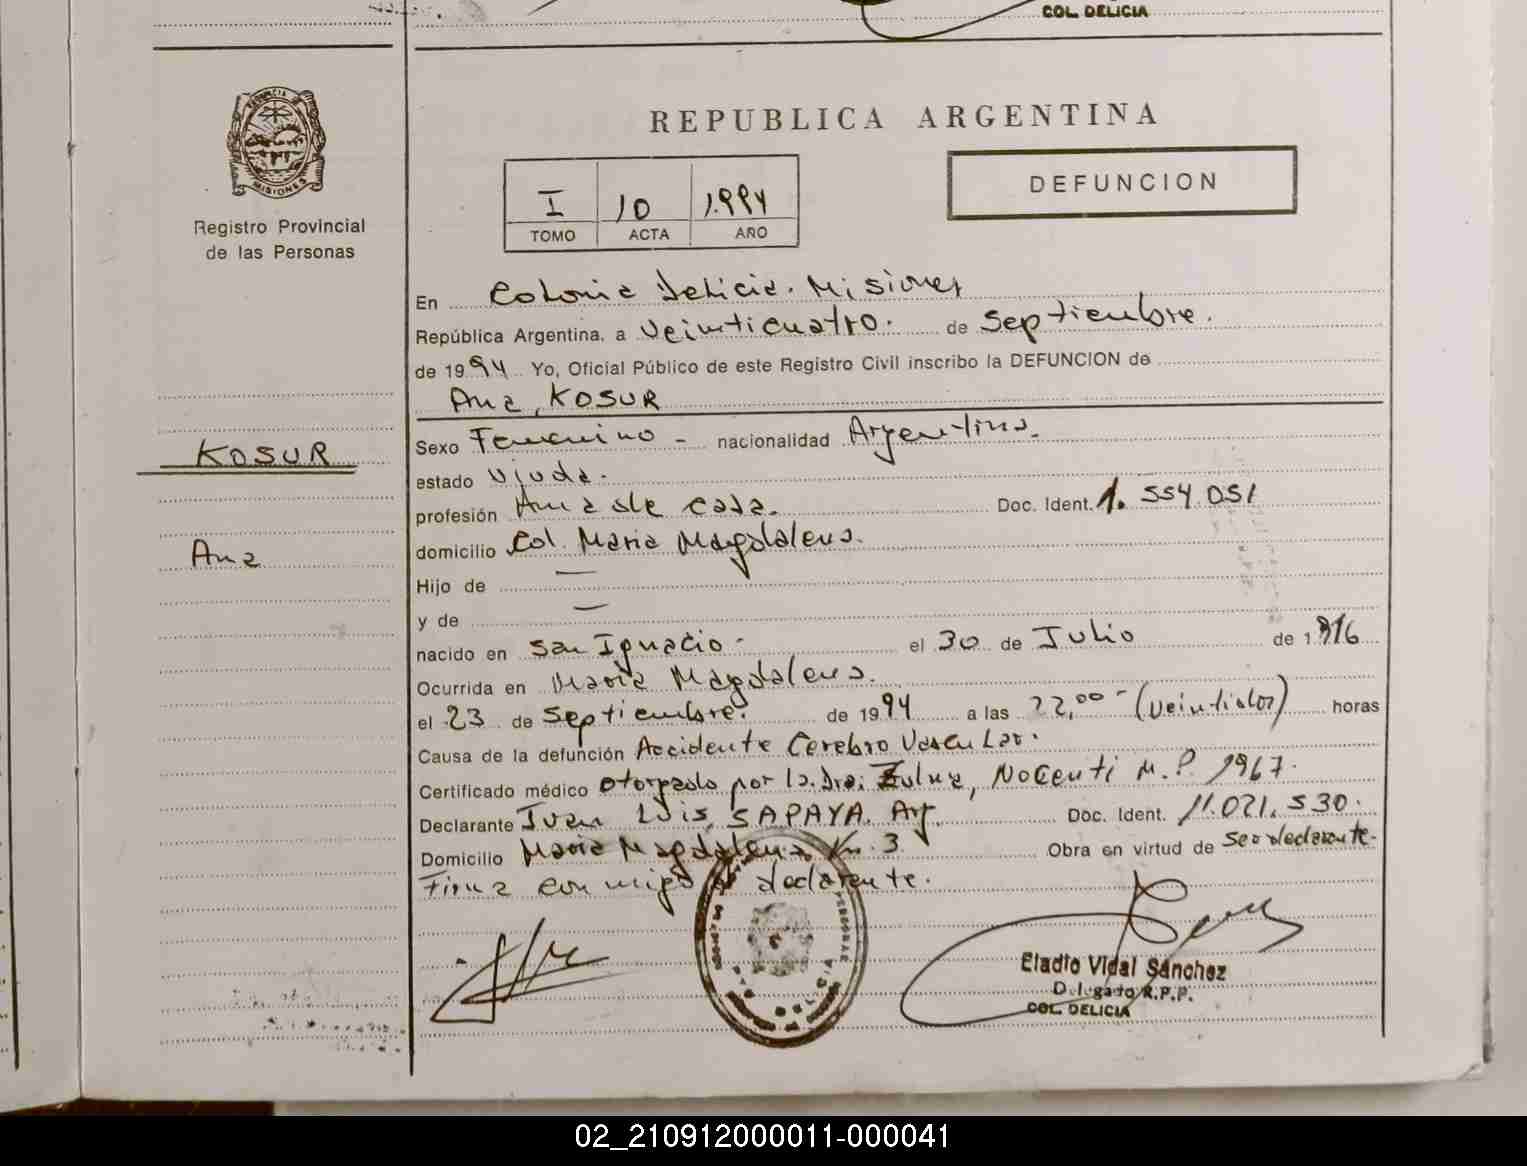 COL. DELICIA
PROVINCIA DE
MISIONES
Registro Provincial
de las Personas
REPUBLICA ARGENTINA
I 10 1.994
TOMO ACTA AÑO
DEFUNCION
En Colonia Delicia. Misiones
República Argentina, a Veinticuatro. de Septiembre.
de 1994 Yo, Oficial Público de este Registro Civil inscribo la DEFUNCION de
Ana, KOSUR
KOSUR
Ana
Sexo Femenino - nacionalidad Argentina.
estado Viuda.
profesión Ama de casa. Doc. Ident. 1.554.051
domicilio Col. Maria Magdalena.
Hijo de —
y de —
nacido en San Ignacio - el 30 de Julio de 1.916
Ocurrida en Maria Magdalena.
el 23 de Septiembre. de 1994 a las 22,00 - (veintidos) horas
Causa de la defunción Accidente Cerebro Vascular.
Certificado médico otorgado por la Dra. Zulma, Nocenti M.P. 1967.
Declarante Juan Luis, SAPAYA. Arg. Doc. Ident. 11.021.530.
Domicilio Maria Magdalena Km. 3 Obra en virtud de ser declarante.
Firma conmigo el declarante.
Eladio Vidal Sánchez
Delegado R.P.P.
COL. DELICIA
02_210912000011-000041